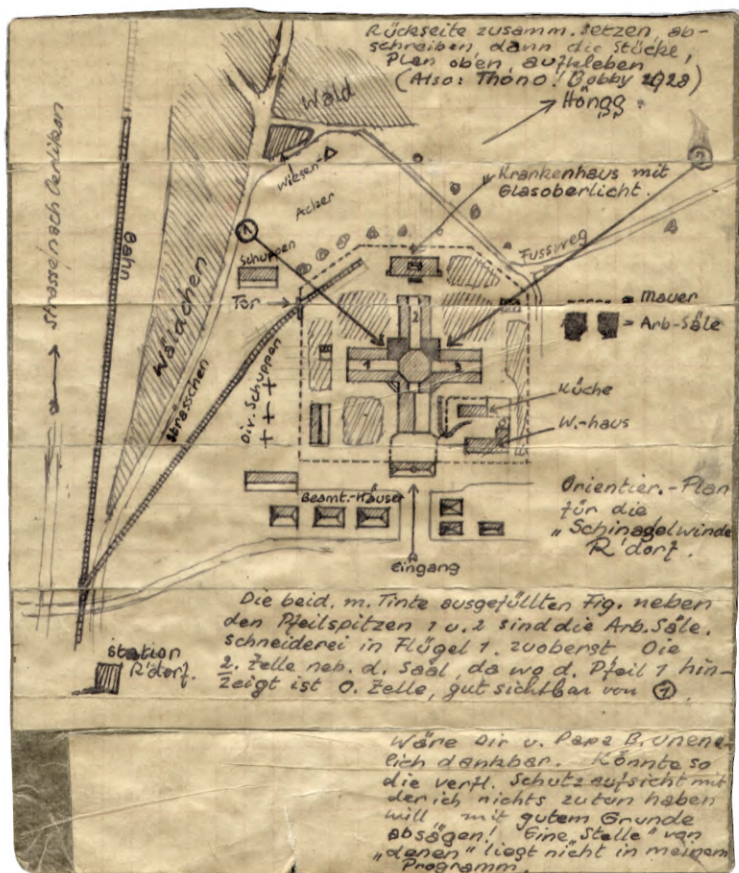 Rückseite zusamm. setzen, ab-
schreiben, dann die Stücke,
Plan oben, aufkleben
(Also: Thöno! Bobby 1928)
Höngg
Wald
Wiesen-
Acker
Krankenhaus mit
Glasoberlicht.
2
1
Fussweg
Strasse nach Oerlikon
Bahn
Wäldchen
Strässchen
Schuppen
Tor
Div. Schuppen
= Mauer
= Arb-Säle
2
1
3
Küche
W.-haus
Beamt.-Häuser
Eingang
Orientier.-Plan
für die
"Schinagelwinde
R'dorf.
Station
R'dorf.
Die beid. m. Tinte ausgefüllten Fig. neben
den Pfeilspitzen 1 u. 2 sind die Arb. Säle.
Schneiderei in Flügel 1. zuoberst. Die
2. Zelle neb. d. Saal, da wo d. Pfeil 1 hin-
zeigt ist O. Zelle, gut sichtbar von 1
Wäre Dir u. Papa B. unend-
lich dankbar. Könnte so
die verfl. Schutzaufsicht mit
der ich nichts zu tun haben
will mit gutem Grunde
absägen! Eine "Stelle" von
"denen" liegt nicht in meinem
Programm.